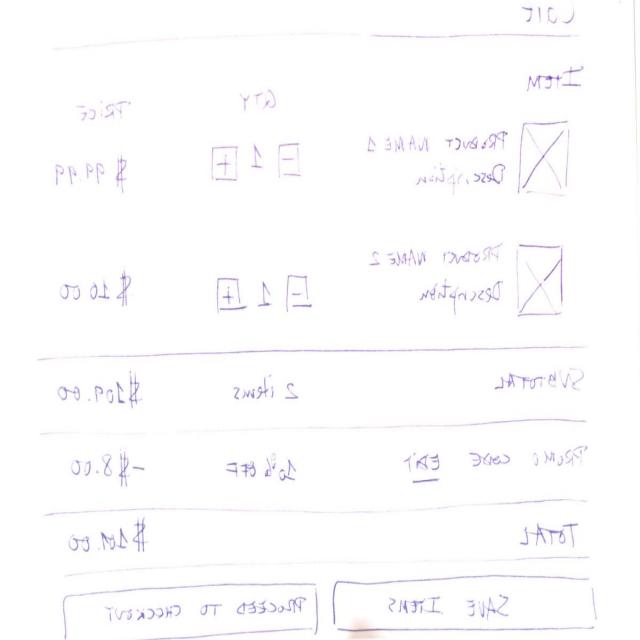 ITEM QTY PRICE
PRODUCT NAME 1 - 1 + $99.99
Description
PRODUCT NAME 2 - 1 + $10.00
Description
SUBTOTAL 2 items $109.00
PROMO CODE EDIT 10% OFF -$8.00
TOTAL $101.00
SAVE ITEMS PROCEED TO CHECKOUT